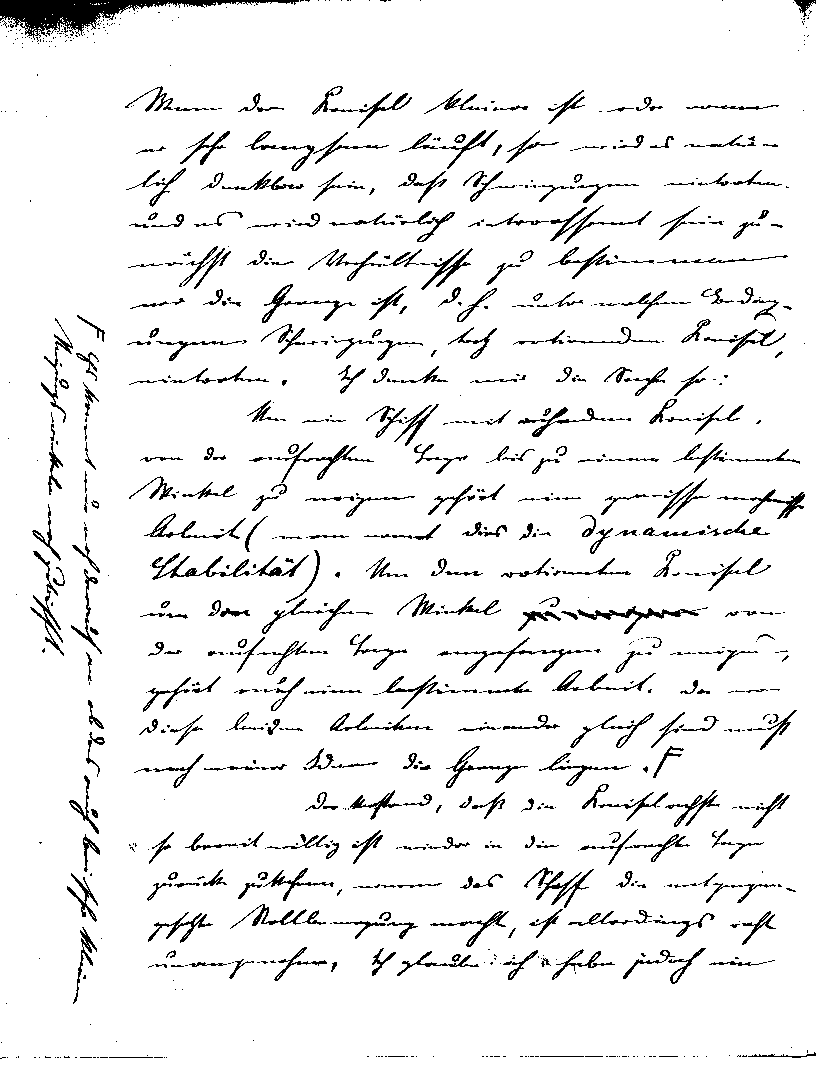 Wenn der Kreisel kleiner ist oder wenn
er sehr langsam läuft, so wird es natür-
lich denkbar sein, daß Schwingungen eintreten.
und es wird natürlich interessant sein zu-
nächst die Verhältnisse zu bestimmen
wo die Grenze ist, d.h. unter welchen Beding-
ungen Schwingungen, trotz rotierendem Kreisel,
eintreten. Ich denke mir die Sache so:
Um ein Schiff mit ruhendem Kreisel,
von der aufrechten Lage bis zu einem bestimmten
Winkel zu neigen gehört eine gewisse
Arbeit (man nennt dies die dynamische
Stabilität). Um den rotierenden Kreisel
um den gleichen Winkel von
der aufrechten Lage angefangen zu neigen,
gehört auch eine bestimmte Arbeit. Da wo
diese beiden Arbeiten einander gleich sind muß
nach meiner Idee die Grenze liegen. F
Der Umstand, daß die Kreiselachse nicht
so bereitwillig ist wieder in die aufrechte Lage
zurückzukehren, wenn das Schiff die entgegen-
gesetzte Rollbewegung macht, ist allerdings recht
unangenehm. Ich glaube ich habe jedoch ein
F Es kommt nur noch darauf an ob das auch bei sehr kleinen
Neigungswinkeln noch zutrifft.